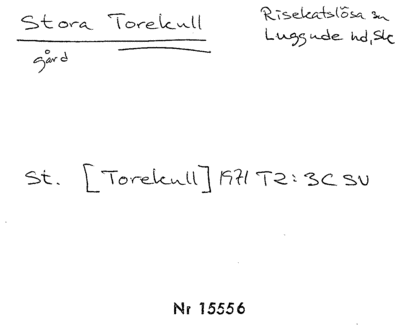 Stora Torekull
gård
Risekatslösa sn
Luggude hd, Sk
St. [Torekull] 1971 T2: 3C SV
Nr 15556